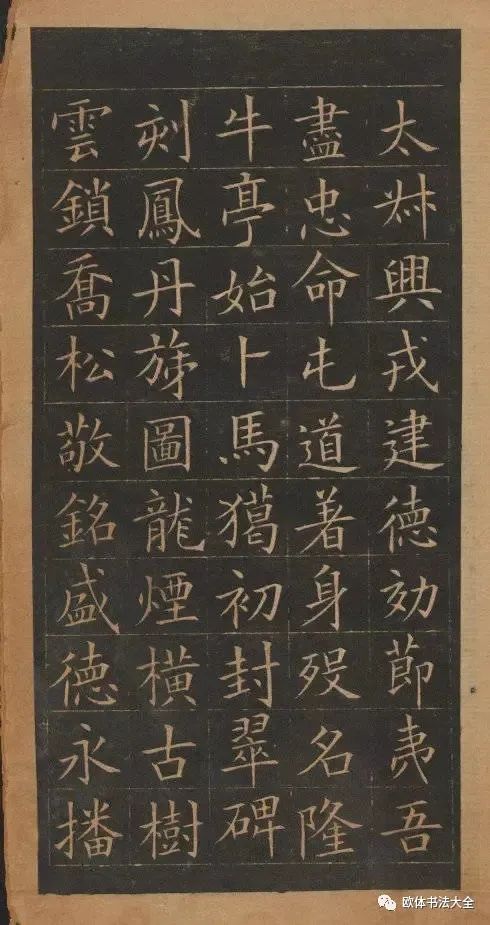 太叔興戎建德効節夷吾
盡忠命屯道着身殁名隆
牛亭始卜馬獦初封翠碑
刻鳳丹旐圖龍煙橫古樹
雲鎖喬松敬銘盛德永播
欧体书法大全